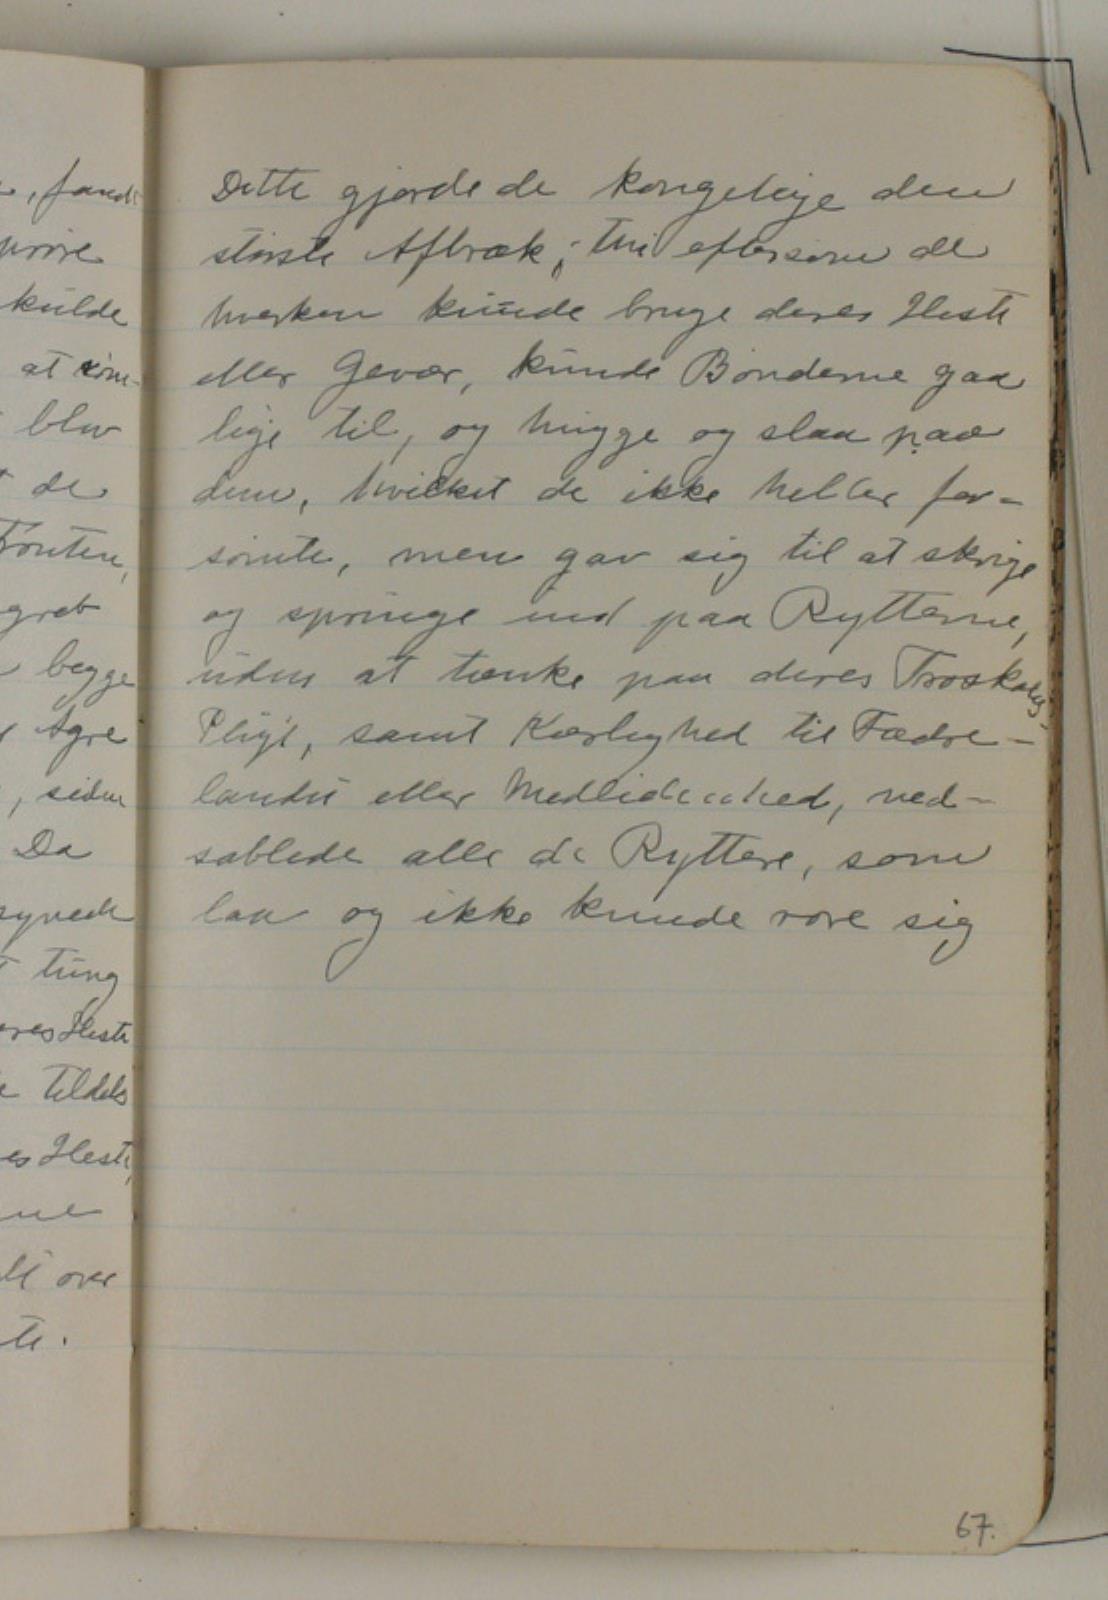 Dette gjorde de kongelige den
største Afbræk; thi eftersom de
hverken kunde bruge deres Heste
eller Gevær, kunde Bønderne gaa
lige til, og hugge og slaa paa
dem, hvilket de ikke heller for-
sømte, men gav sig til at skrige
og springe ind paa Rytterne,
uden at tænke paa deres Troskabs-
Pligt, samt Kærlighed til Fædre-
landet eller Medlidenhed, ned-
sablede alle de Ryttere, som
laa og ikke kunde røre sig
67.
, fandt
prøve
kulde
at røm-
blev
de
Fronten,
greb
begge
Agre
, siden
Da
synede
tung
eres Heste
tildels
es Heste,
ne
over
te.